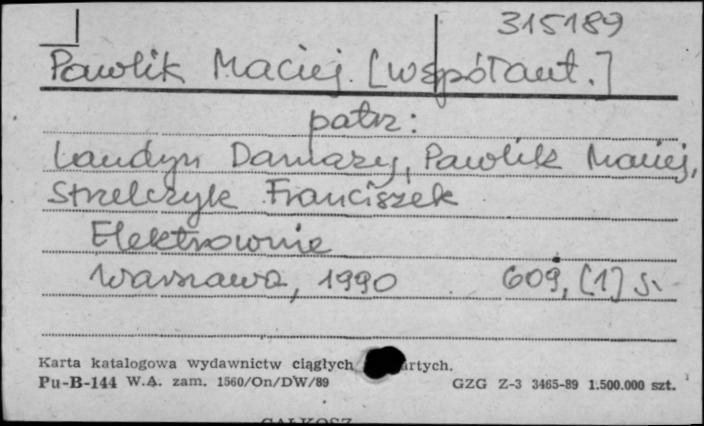 315189
Pawlik Maciej. [współaut.]
patrz:
Laudyn Damazy, Pawlik Maciej,
Strzelczyk Franciszek
Elektrownie
Warszawa, 1990 609, [1] s.
Karta katalogowa wydawnictw ciągłych
Pu-B-144 W.A. zam. 1560/On/DW/89 GZG Z-3 3465-89 1.500.000 szt.